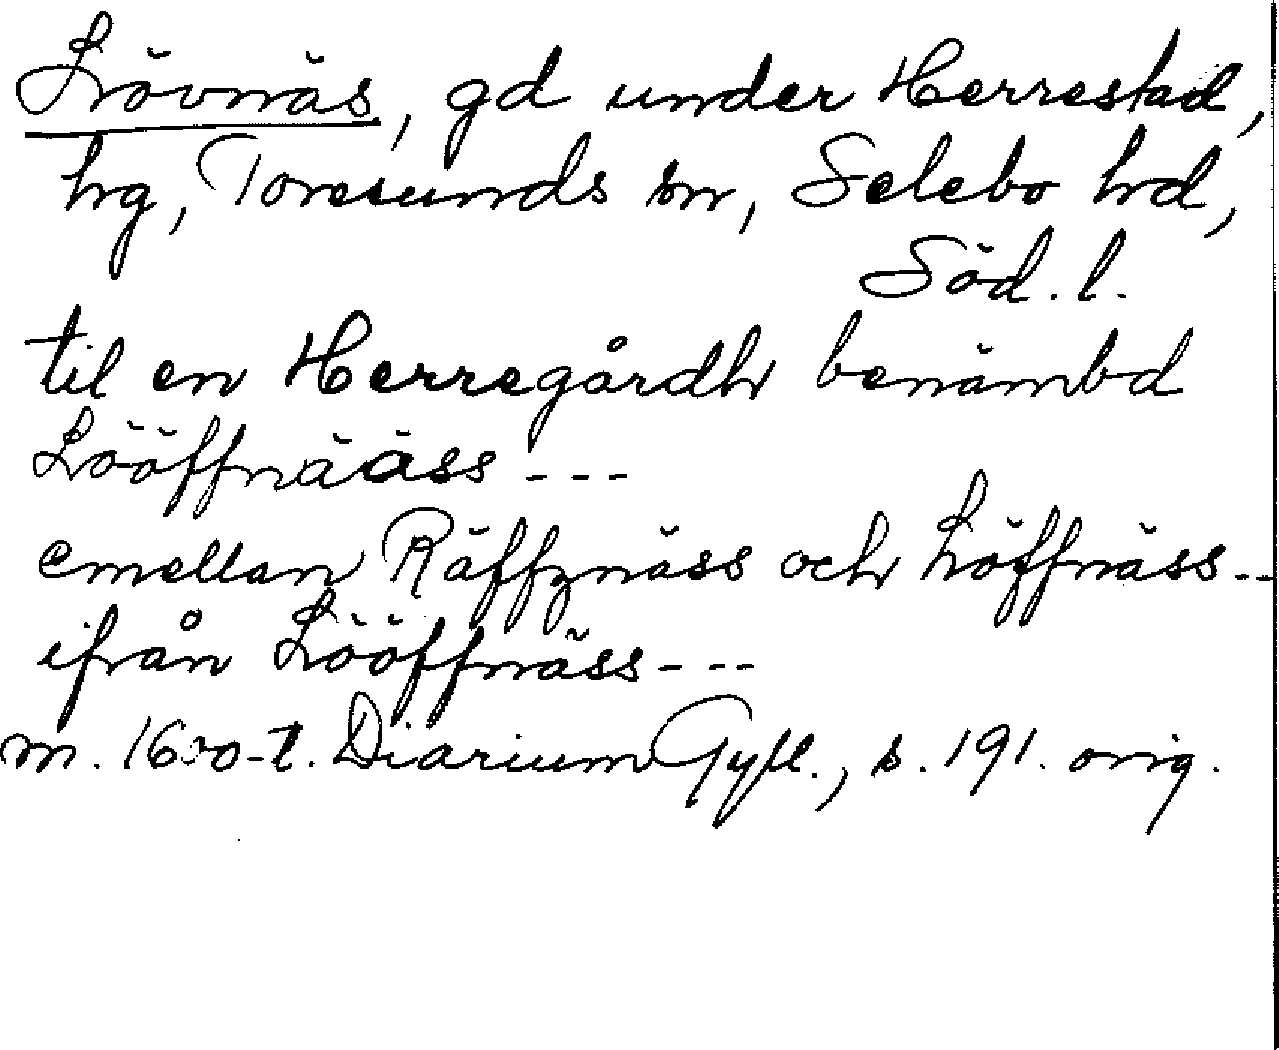 Lövnäs, gd under Herrestad,
hg, Toresunds sn, Selebo hd,
Söd. l.
til en Herregårdh benämbd
Lööffnääss ---
emellan Räffznäss och Löffnäss --
ifrån Lööffnäss ---
m. 1600-t. Diarium Gyll., s. 191. orig.